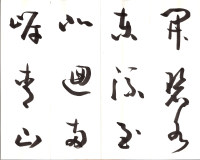 開碧水
東流至
此迴兩
岸青山